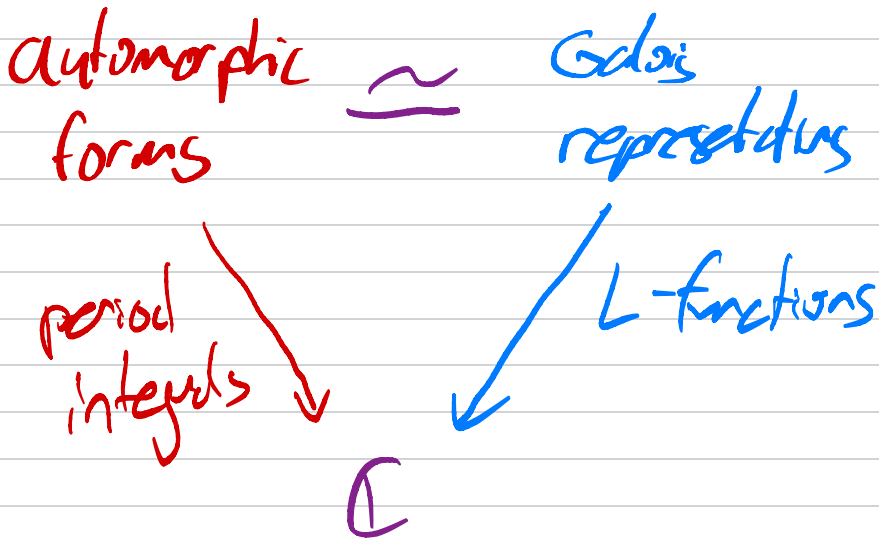 automorphic
forms
≃
Galois
representations
period
integrals
L-functions
ℂ